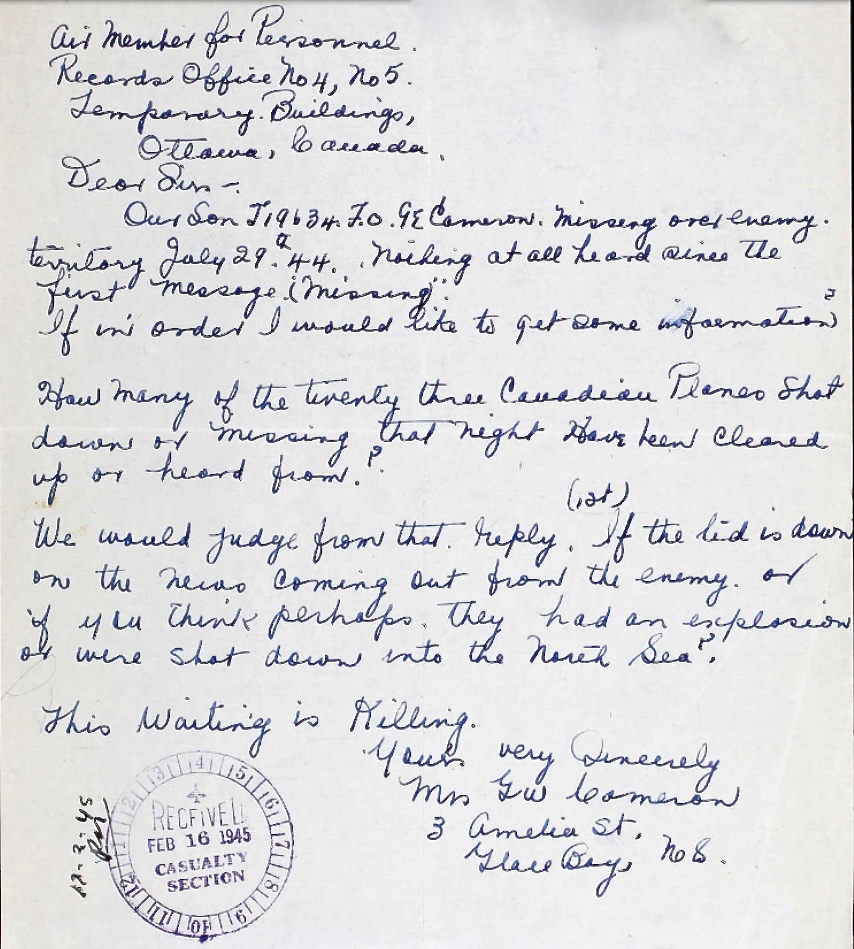 Air Member for Personnel.
Records Office No 4, No 5.
Temporary Buildings,
Ottawa, Canada.
Dear Sir -.
Our Son J19634. F.O. G E Cameron. Missing over enemy.
territory July 29. 44. Nothing at all heard since the
first message. (Missing).
If in order I would like to get some information?
How many of the twenty three Canadian Planes Shot
down or missing that night Have been Cleared
up or heard from.?
(1st)
We would judge from that. reply. If the lid is down
on the news coming out from the enemy. or
if you think perhaps. they had an explosion
or were shot down into the North Sea?.
This Waiting is Killing.
Yours very Sincerely
Mrs G W Cameron
3 Amelia St.
Glace Bay, N S.
RECEIVED
FEB 16 1945
CASUALTY
SECTION
1 2 3 4 5 6 7 8 9 10 11 12
17-2-45